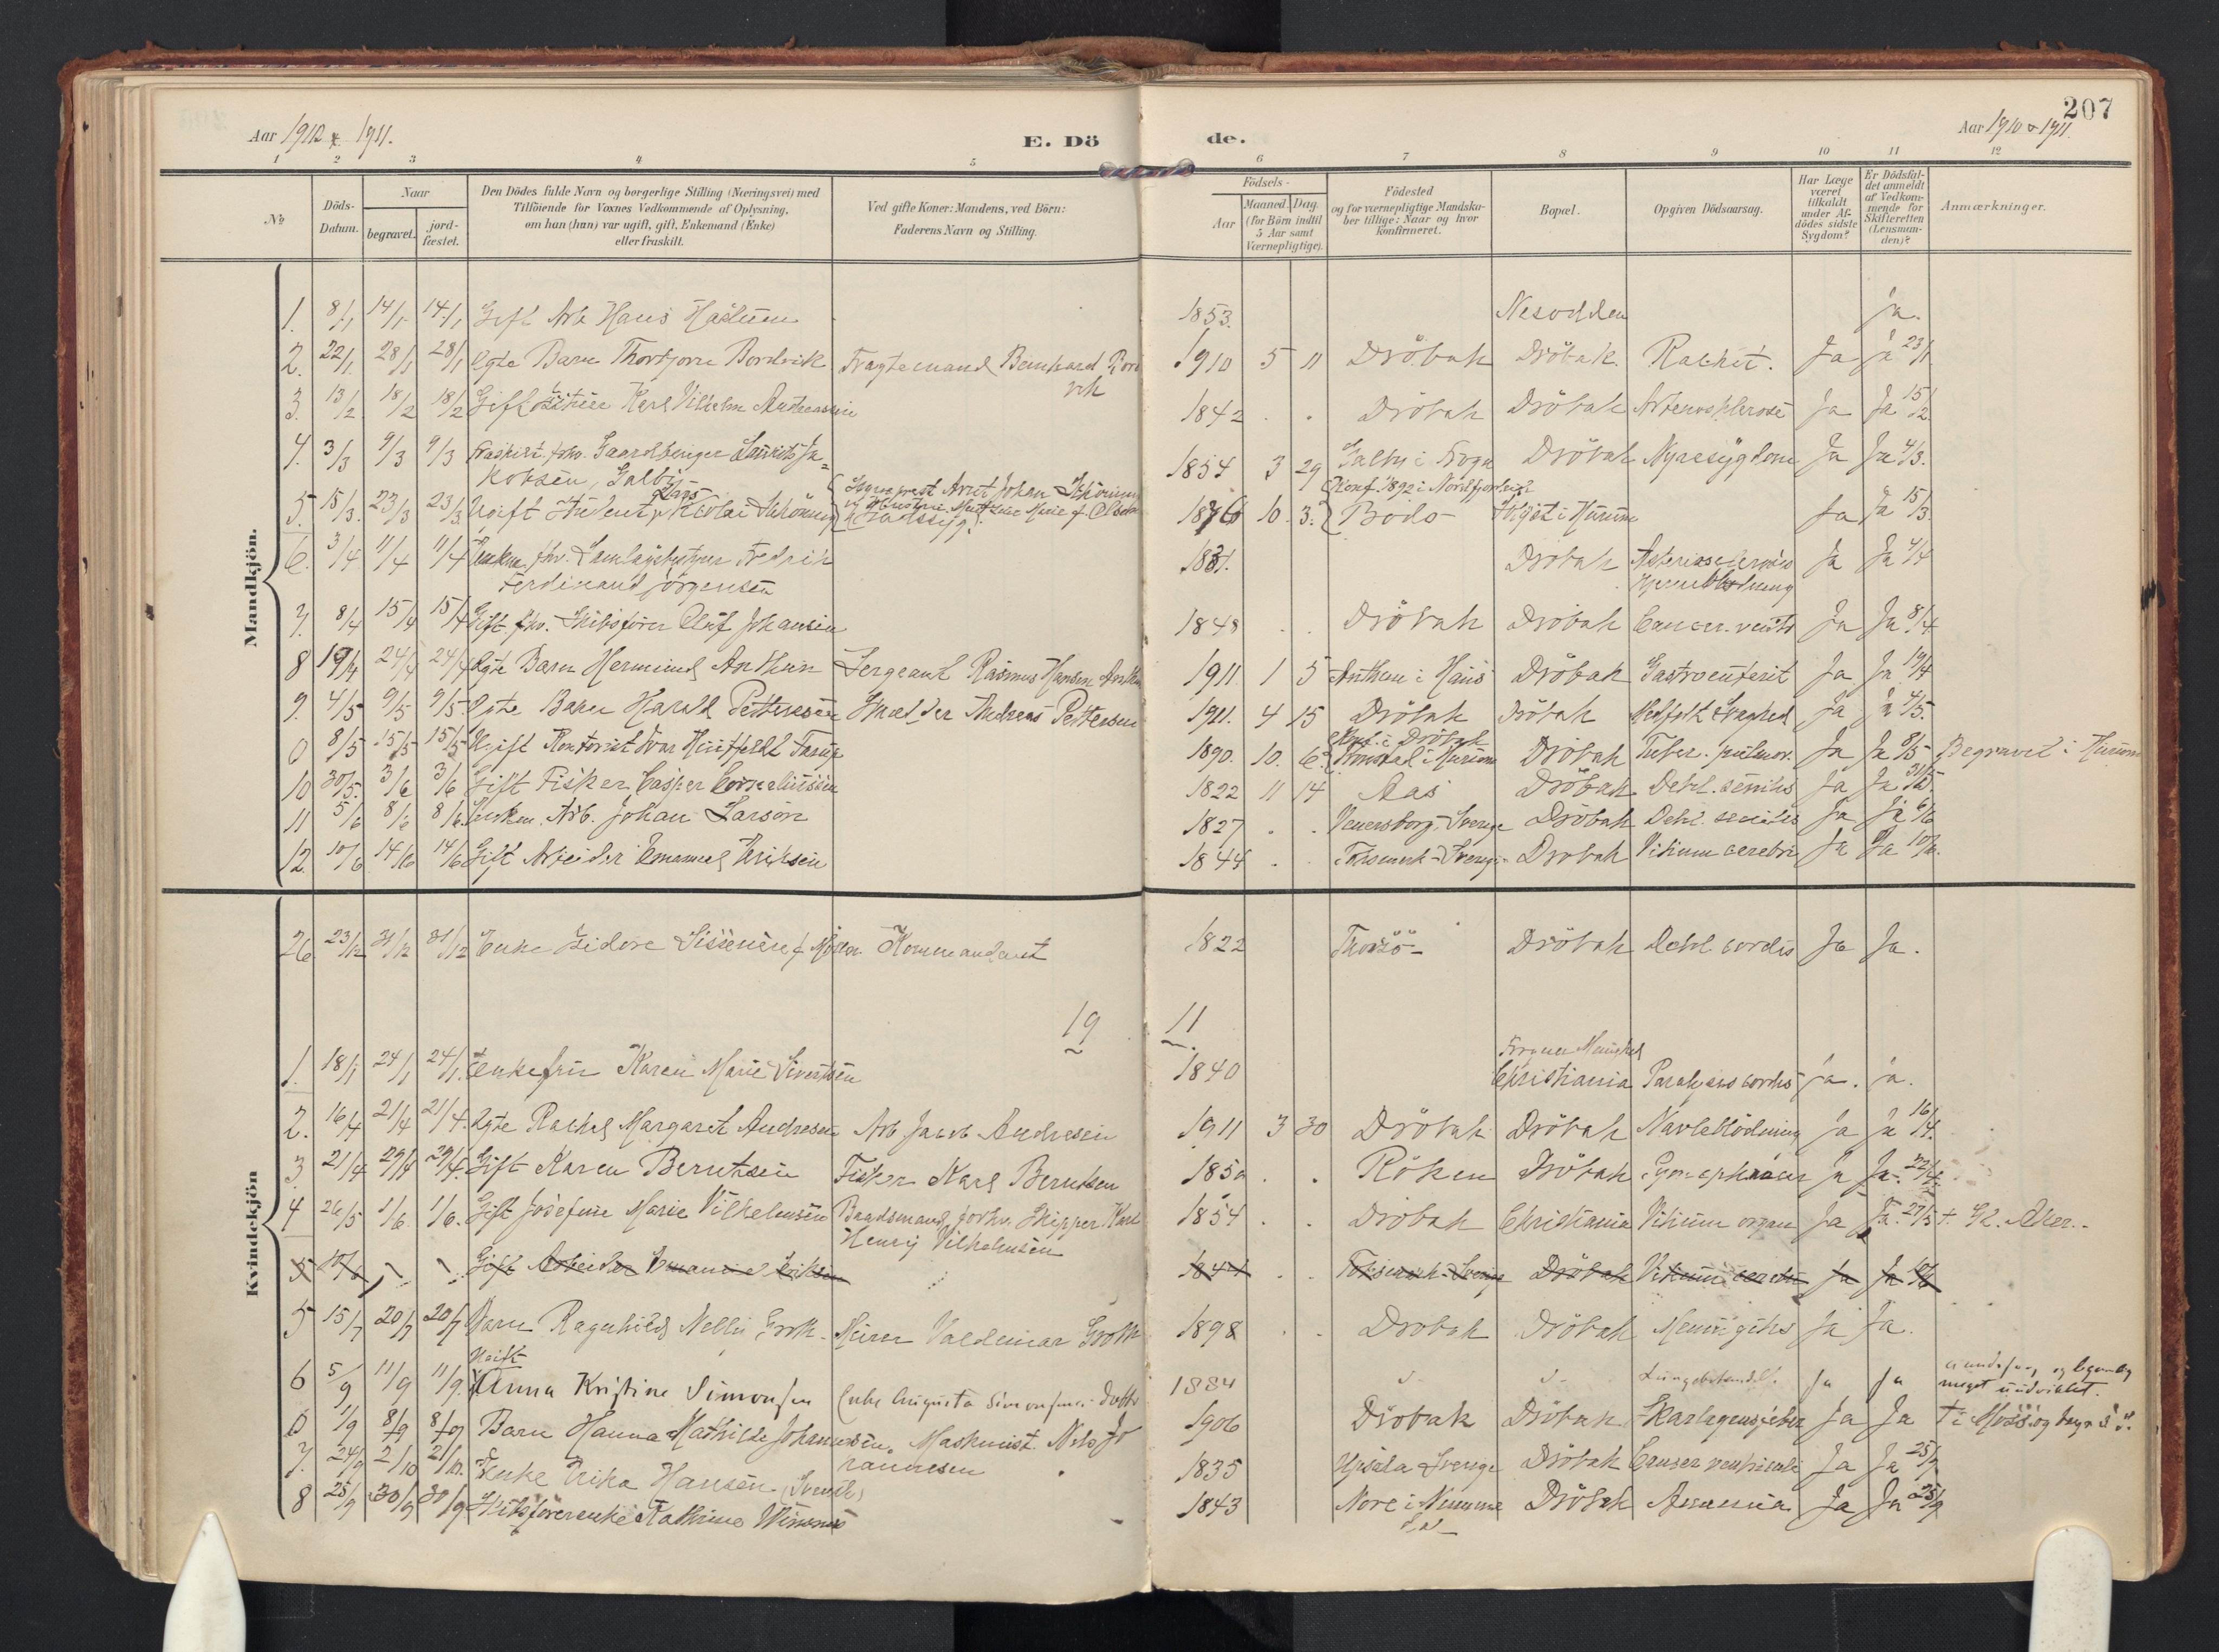 207
Aar 1910 & 1911.
E. Dö
de.
Aar 1910 & 1911.
1 2 3 4 5 6 7 8 9 10 11 12
No
Döds-Datum.
Naar
begravet.
jord-fæstet.
Den Dödes fulde Navn og borgerlige Stilling (Næringsvei) med
Tilföiende for Voxnes Vedkommende af Oplysning,
om han (hun) var ugift, gift, Enkemand (Enke)
eller fraskilt.
Ved gifte Koner: Mandens, ved Börn:
Faderens Navn og Stilling.
Födsels-
Aar
Maaned. Dag.
(for Börn indtil
5 Aar samt
Værnepligtige).
Födested
og for værnepligtige Mandska-
ber tillige: Naar og hvor
konfirmeret.
Bopæl.
Opgiven Dödsaarsag.
Har Læge
været
tilkaldt
under Af-
dödes sidste
Sygdom?
Er Dödsfal-
det anmeldt
af Vedkom-
mende for
Skifteretten
(Lensman-
den)?
Anmærkninger.
Mandkjön.
1. 8/1 14/1 14/1 Gift Arb Hans 1853. Nesodden ja.
2. 22/1 28/1 28/1 Ægte Barn Thorbjørn Bordvik Fragtemand Bernhard Bord
vik
1910 5 11 Dröbak Dröbak Rachit. Ja ja 23/1
3. 13/2 18/2 18/2 Gift Karl Vilhelm Andreassen 1842 . . Dröbak Dröbak Arteriosklerose Ja Ja 15/2
4. 3/3 9/3 9/3 Fraskilt fhv. Gaardbruger Laurits Ja=
kobsen, Galby
1854 3 29 Galby i Frogn Dröbak Nyresygdom Ja Ja 4/3.
5. 15/3. 23/3 23/3 Ugift Student Lars Nicolai Schönning Sogneprest Arnt Johan Schönning
1876 10. 3. Bodö Ja Ja 15/3
6. 3/4 11/4 11/4 Enkm. fhv. Samlagsbestyrer Fredrik
Ferdinand Jörgensen
1831. Dröbak Ja Ja 4/4
Hjerneblödning
7. 8/4 15/4 15/4 Gift fhv. Skibsförer Oluf Johansen 1848 . . Dröbak Dröbak Cancer ventr Ja Ja 8/4
8 19/4 24/4 24/4 Ægte Barn Hermund Anthun Sergeant Rasmus Hansen Anthun 1911. 1 5 Anthun i Dröbak Gastroenterit Ja Ja 19/4
9. 4/5 9/5 9/5. Ægte Barn Harald Pettersen Smed Andreas Pettersen 1911. 4 15 Dröbak Dröbak Medfødt Svaghed Ja Ja 4/5.
0 8/5 15/5 15/5 Ugift Kontorist Ivar Huitfeldt 1890. 10. 6. Konf. i Dröbak
i Hurum Dröbak Tuber. pulmon. Ja Ja 8/5 Begravet i Hurum
10 30/5. 3/6 3/6 Gift Fisker Casper Corneliussen 1822 11 14 Aas Dröbak Debil. senilis Ja Ja 31/5.
11 5/6 8/6 8/6. Enkem. Arb. Johan Larson 1827 . . Venersborg, Sverige Dröbak Debil. senilis Ja Ja 6/6
12. 10/6 14/6 14/6 Gift Arbeider Emanuel Eriksen 1844 . . Sverige Dröbak Vitium cerebri Ja Ja 10/6.
Kvindekjön
26 23/12 31/12 31/12 Enke Isidore f. Møller Kommandant 1822 Dröbak Debil. cordis Ja Ja.
19 11
1. 18/1 24/1 24/1. Enkefru Karen Marie Sivertsen 1840 Frogner Menighed
Christiania Paralysis cordis ja. ja.
2. 16/4 21/4 21/4. Ægte Rachel Margaret Andresen Arb Jacob Andresen 1911 3 30 Dröbak Dröbak Navleblödning ja ja 16/4.
3. 21/4 29/4 29/4. Gift Karen Berntsen Fisker Karl Berntsen 1850 . . Röken Dröbak ja Ja. 22/4.
4 26/5 1/6 1/6. Gift Josefine Marie Vilhelmsen Baadsmand, forhv. Skipper Karl
Henry Vilhelmsen
1854 . . Dröbak Christiania Vitium organ Ja Ja. 27/5 Aker.
5 10/6 Gift Arbeider Emanuel Eriksen 1844 . . Sverige Dröbak Vitium cerebri Ja Ja 10/6
5 15/7 20/7 20/7 Barn Ragnhild Nelly Groth Murer Valdemar Groth 1898 . . Dröbak Dröbak Meningitis Ja Ja.
6 5/9 11/9 11/9. Ugift
Anna Kristine Simonsen Enke Augusta Simonsens Datter 1884 Ja Ja
0 1/9 8/9 8/9 Barn Hanna Mathilde Johannesen. Maskinist Nils Jo
hannesen
1906 Dröbak Dröbak Skarlagensfeber Ja Ja
7. 24/9 2/10 2/10. Enke Erika Hansen (Svensk) 1835 Upsala Sverige Dröbak Cancer ventriculi Ja Ja 25/9
8 25/9 30/9 30/9 Skibsförerenke Kathrine 1843 Nore i Numme
dal
Dröbak Anæmia Ja Ja 25/9